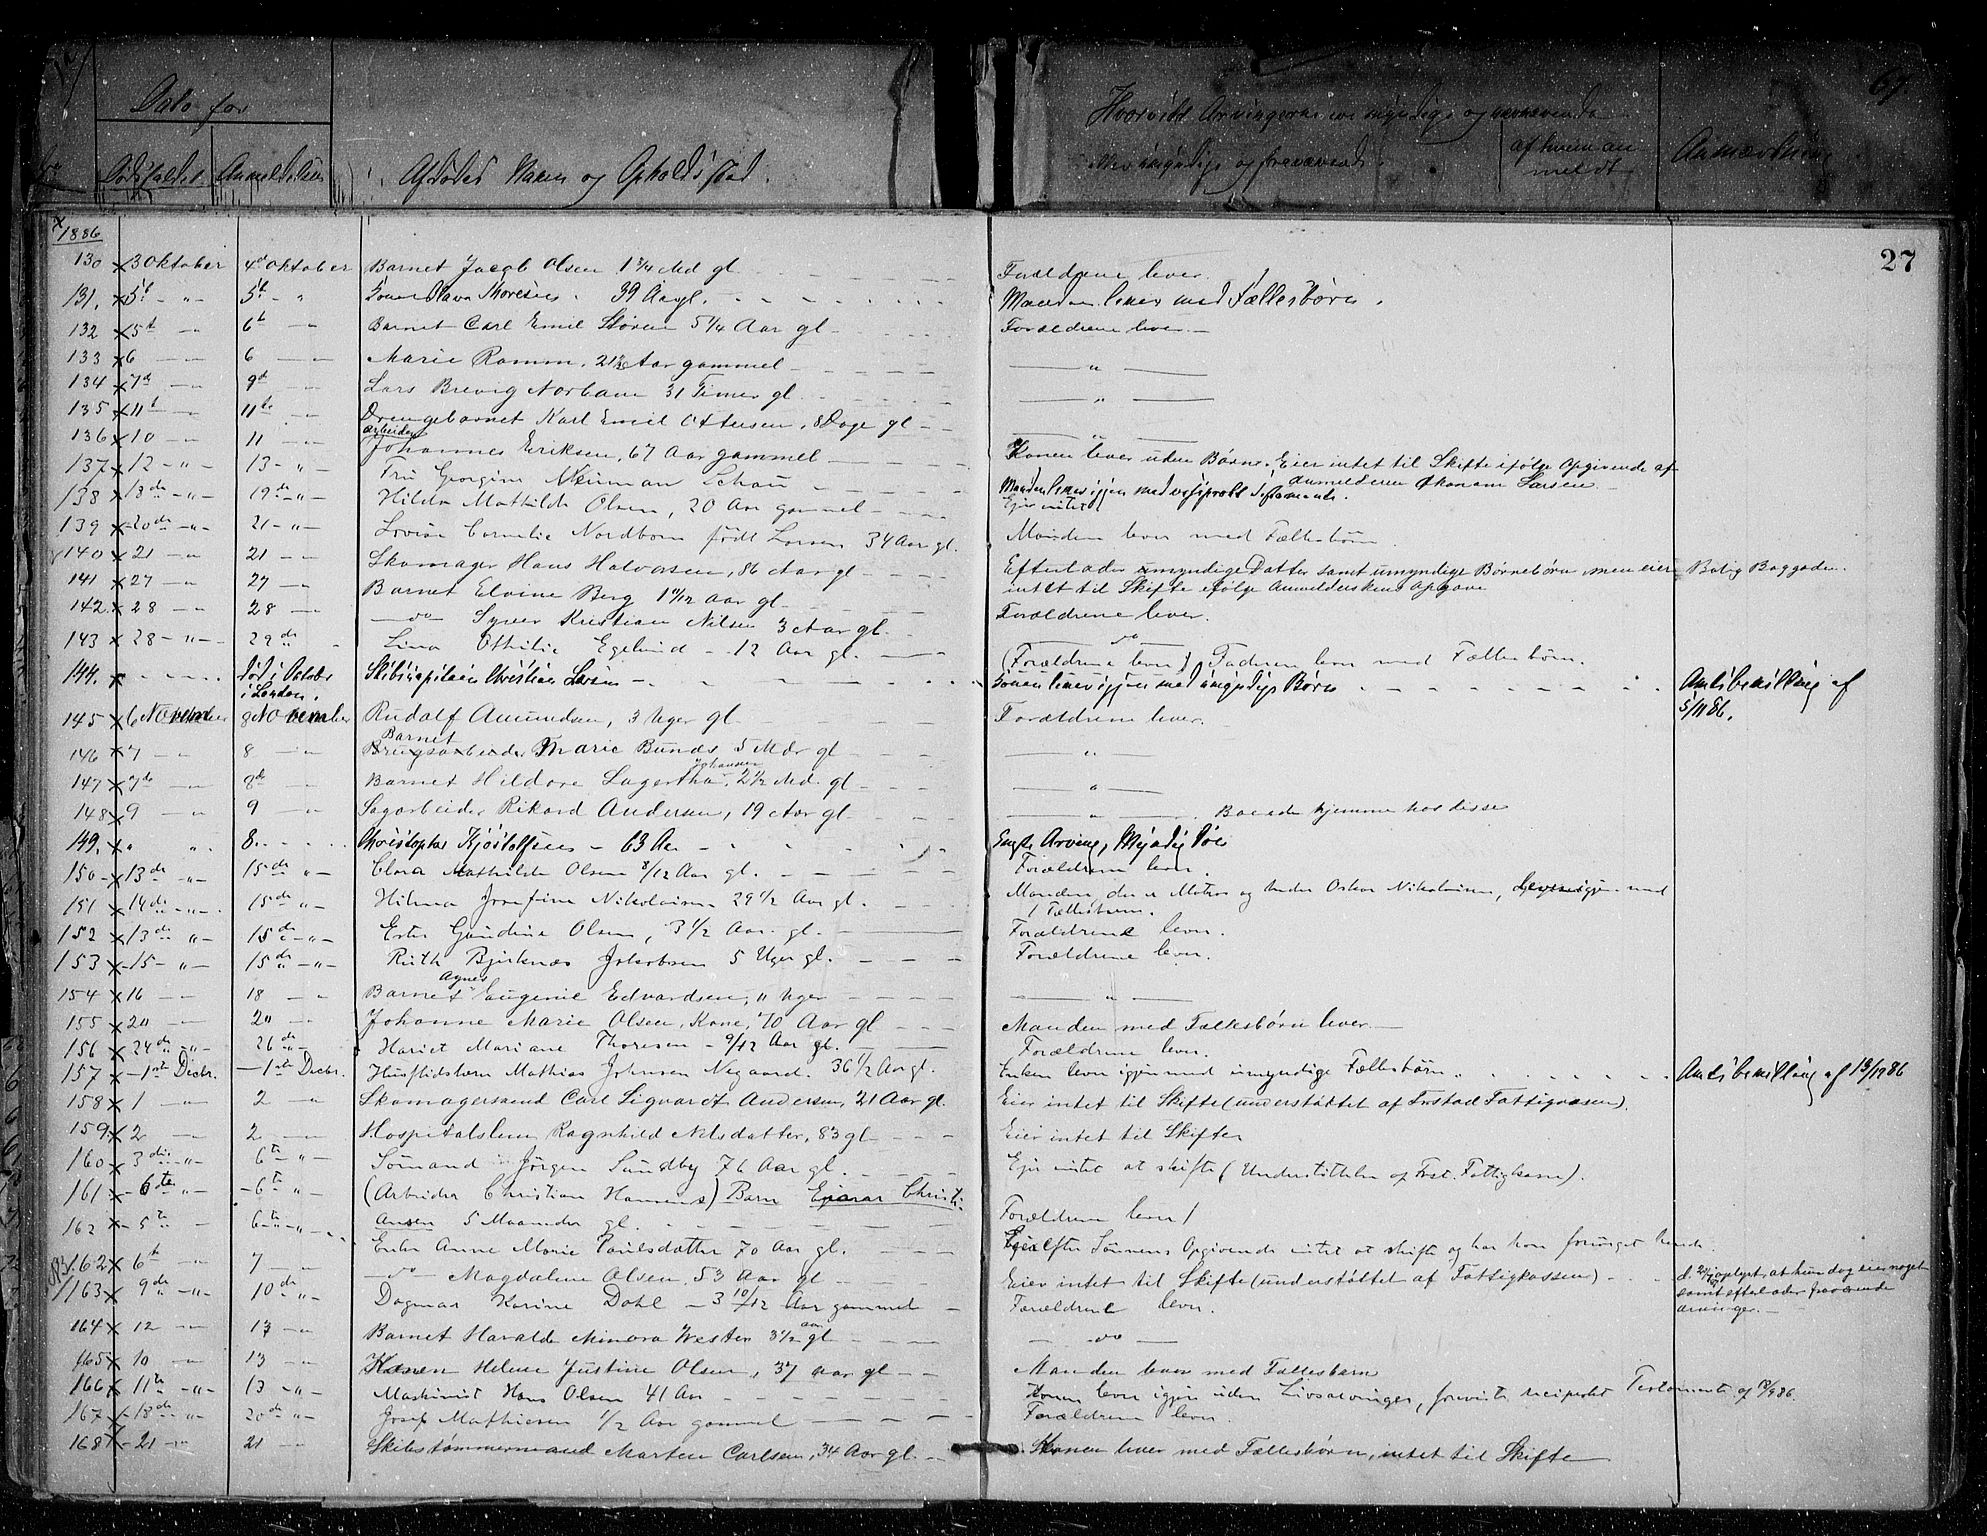 Dato for
Dødsfaldet Anmeldelsen Afdødes Navn og Opholdssted.
Hvorvidt Arvingerne ere myndige og nærværende
eller umyndige og fraværende.
af hvem anmeldt
Anmærkning
69.
27
1886
130 3 Oktober 4d Oktober Barnet Jacob Olsen 1 3/4 Md gl Forældrene lever.
131. 5t - „ - 5t - „ Thoresen. 39 Aar gl. Manden lever med Fællesbørn.
132 5t — „ 6t — „ Barnet Carl Emil Støren 5 1/4 Aar gl Forældrene lever. —
133 6 — „ 6 — „ Marie Ramm, Aar gammel — „ —
134 7d — „ 9d — „ Lars Brevig Norbam 31 Timer gl. — „ —
135 11t — „ 11te — „ Drengebarnet Karl Emil Ottersen, 8 Dage gl — „ —
136 10 — „ 11 — „ Arbeider Johannes Eriksen, 67 Aar gammel Konen lever uden Børn. Eier intet til Skifte ifølge Opgivende af
Anmelderen Økonom Larsen
137 12 - „ - 13 - „ Fru Georgine Neuman Schou Manden lever igjen med resiprokt Testamente.
138 18de - „ - 19de - „ - Hilda Mathilde Olsen, 20 Aar gammel Ejer intet
139 20de - „ - 21 - „ - Lovise Cornelie Nordbom født Larsen 34 Aar gl. Manden lever med Fællesbørn
140 21 — „ 21 — „ Skomager Hans Halvorsen, 86 Aar gl Efterlader myndige Datter samt umyndige Børnebørn men eier
intet til Skifte ifølge Anmelderskens Opgave
Bolig Baggaden.
141 27 — „ 27 — „ Barnet Elvine Berg 1 11/12 Aar gl. Forældrene lever.
142. 28 — „ 28 — „ — do Syver Kristian Nilsen 3 Aar gl. — do —
143 28 - „ - 29de „ Lina Othilie Egelund - 12 Aar gl. (Forældrene lever) Faderen lever med Fællesbørn.
144. død i Octobr i London. Skibscapitain Christian Larsen Konen lever igjen med umyndige Børn Amtsbevilling af
5/11 86.
145 6 November 8 November Rudolf Amundsen, 3 Uger gl Forældrene lever.
146 7 — „ 8 — „ Barnet Marie Bunæs, 5 Mdr gl — „ —
147 7de — „ 8de — „ Barnet Hildore Lagertha Johansen, 2 1/2 Md. gl — „ —
148 9 — „ 9 — „ Sagarbeider Rikard Andersen, 19 Aar gl — „ — . Boende hjemme hos disse
149. „ „ 8. Christopher Kjøstolfsen - 63 Aar Eneste Arving, Myndig Søn
150 13de „ - 15de „ - Clara Mathilde Olsen 8/12 Aar gl. Forældrene lever.
151 14de - „ - 15de „ - Hilma Josefine Nikolaisen 29 1/2 Aar gl. Manden, der er Matros og heder Oskar Nikolaisen, lever igjen med
1 Fællesbarn.
152 13de „ - 15de - „ - Ester Gundine Olsen, 3 1/2 Aar gl. Forældrene lever.
153 15 - „ - 15de - „ - Ruth Bjerknæs Jakobsen 5 Uger gl. Forældrene lever.
154 16 — „ 18 — „ Barnet Agnes Eugenie Edvardsen, 11 Uger — „ —
155 20 — „ 20 — „ Johanne Marie Olsen, Kone, 70 Aar gl Manden med Fællesbørn lever. —
156 24de - „ - 26de „ - Hariet Mariane Thoresen - 9/12 Aar gl. Forældrene lever.
157 - 1ste Decbr. - 1ste Decbr. Husflidslærer Mathias Johnsen Nygaard. 36 1/2 Aar gl. Enken lever igjen med umyndige Fællesbørn Amtsbevilling af 13/12 86
158 1 — „ 2 — „ Skomagersvend Carl Sigvardt Andersen, 21 Aar gl. Eier intet til Skifte (understøttet af Frstad Fattigvæsen).
159. 2 — „ 2 — „ Hospitalslem Ragnhild Nilsdatter, 83 gl Eier intet til Skifte
160 3die - „ - 6te „ - Sømand Jørgen Sundby 76 Aar gl. Ejer intet at skifte (Understøttelse af Frst. Fattigkasse).
161 - 6te „ - - 6te „ - (Arbeider Christian Hansens) Barn Ejnar Christi-
ansen 5 Maaneder gl. Forældrene lever
162 5te „ - 6te - „ - Enke Anne Marie Paulsdatter 70 Aar gl. Ejer efter Sønnens Opgivende intet at skifte og har han forsørget hende.
162 6te „ 7 — „ — do — Magdalene Olsen, 53 Aar gl Eier intet til Skifte (understøttet af Fattigkassen)
oplyst, at hun dog eier noget
samt efterlader fraværende
arvinger. —
163 9de - „ - 10de „ Dagmar Karine Dahl - 3 10/12 Aar gammel Forældrene lever.
164 12 — „ 13 — „ Barnet Haralda Minora Wester 3 1/2 aar gl — do —
165 10 — „ 13 — „ Konen Helene Justine Olsen, 37 aar gl Manden lever med Fællesbarn
166 11te - „ - 13 - „ - Maskinist Hans Olsen 41 Aar Konen lever igjen uden Livsarvinger, forevist reciprokt Testamente af
167 18de - „ - 20de „ - Josef Mathiesen 1/2 Aar gammel Forældrene lever.
168 - 21 - „ 21 — „ Skibstømmermand Marten Carlsen, 34 Aar gl. Konen lever med Fællesbørn, intet til Skifte